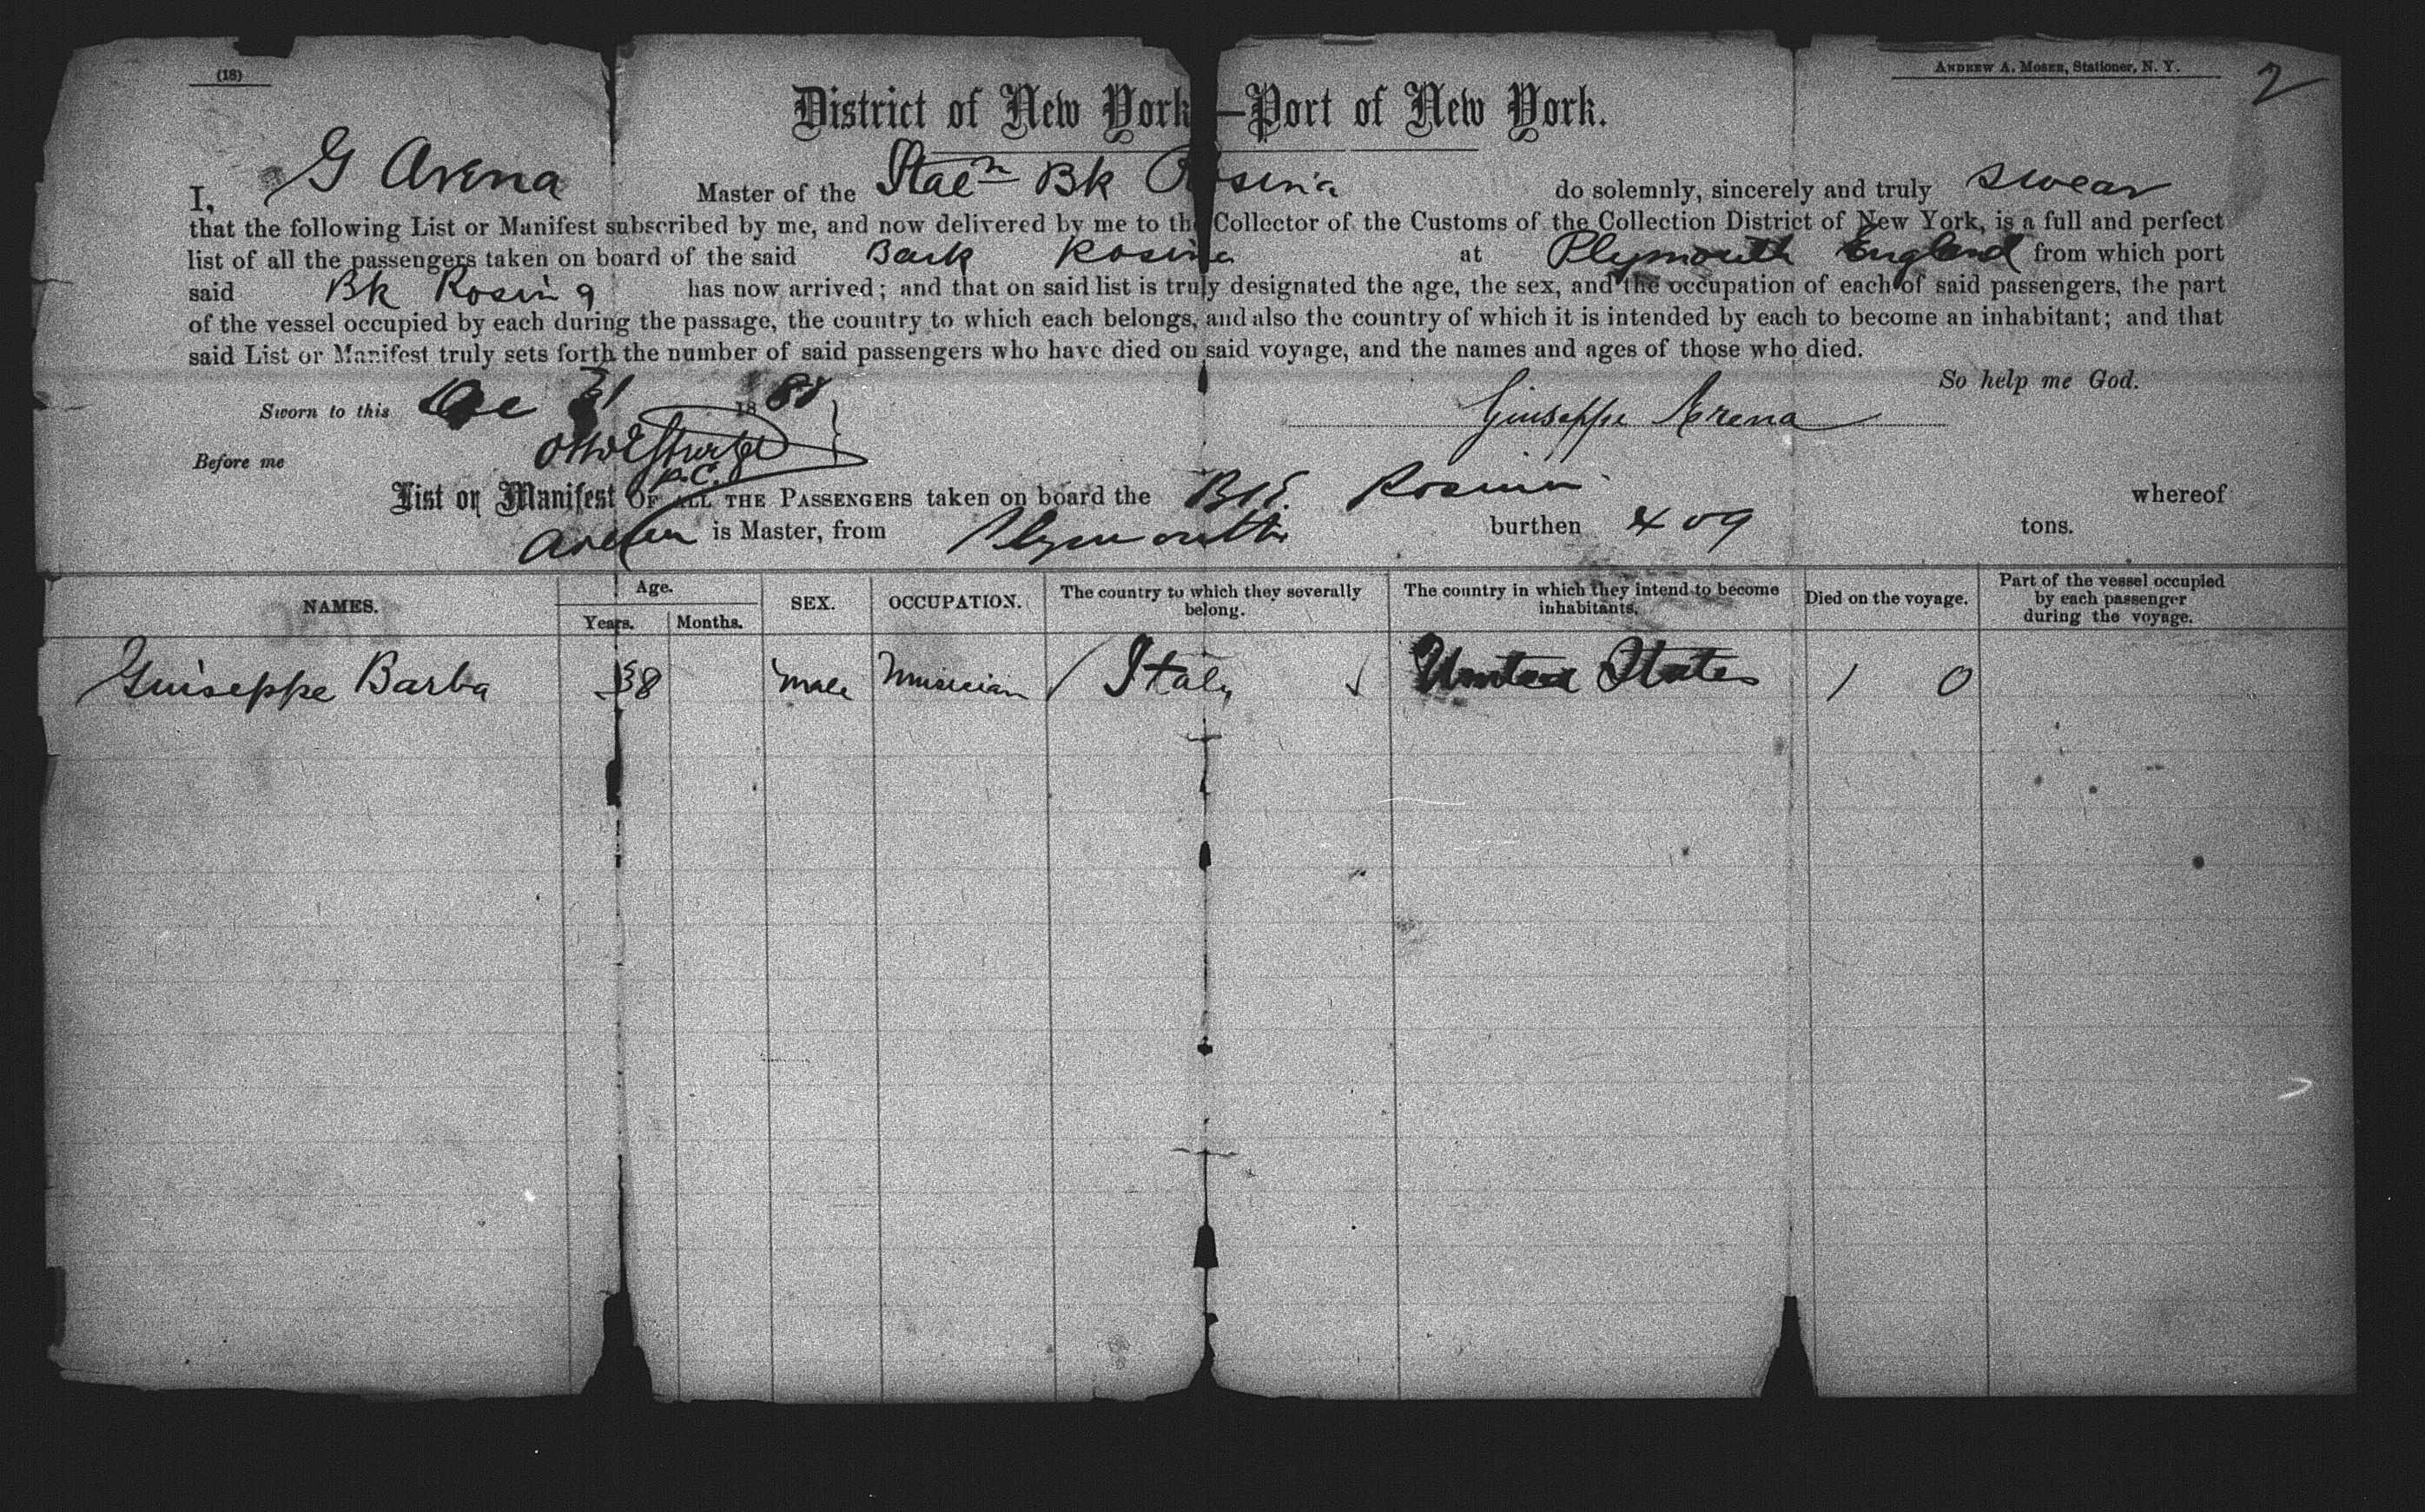 (18)
ANDREW A. MOSER, Stationer, N. Y.
2
District of New York—Port of New York.
I, G Arena Master of the Bk Rosina do solemnly, sincerely and truly swear
that the following List or Manifest subscribed by me, and now delivered by me to the Collector of the Customs of the Collection District of New York, is a full and perfect
list of all the passengers taken on board of the said Bark Rosina at Plymouth England from which port
said Bk Rosina has now arrived; and that on said list is truly designated the age, the sex, and the occupation of each of said passengers, the part
of the vessel occupied by each during the passage, the country to which each belongs, and also the country of which it is intended by each to become an inhabitant; and that
said List or Manifest truly sets forth the number of said passengers who have died on said voyage, and the names and ages of those who died.
So help me God.
Sworn to this 31 188
Giuseppe Arena
Before me
D.C.
List or Manifest OF ALL THE PASSENGERS taken on board the Rosina whereof
is Master, from Plymouth burthen 409 tons.
NAMES. Age. Years. Months. SEX. OCCUPATION. The country to which they severally belong. The country in which they intend to become inhabitants. Died on the voyage. Part of the vessel occupied by each passenger during the voyage.
Guiseppe Barba 38 male Musician / Italy ✓ United States / 0